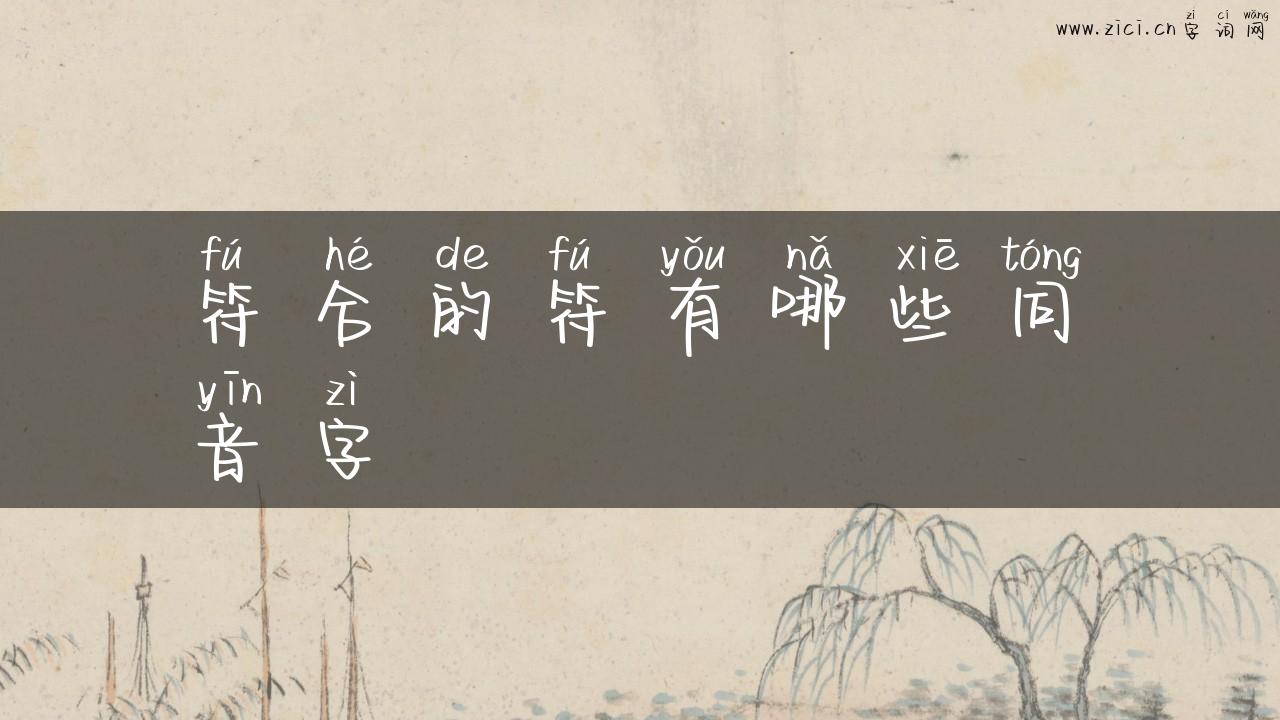 zì cí wǎng
www.zici.cn字词网
fú hé de fú yǒu nǎ xiē tóng
符合的符有哪些同
yīn zì
音字